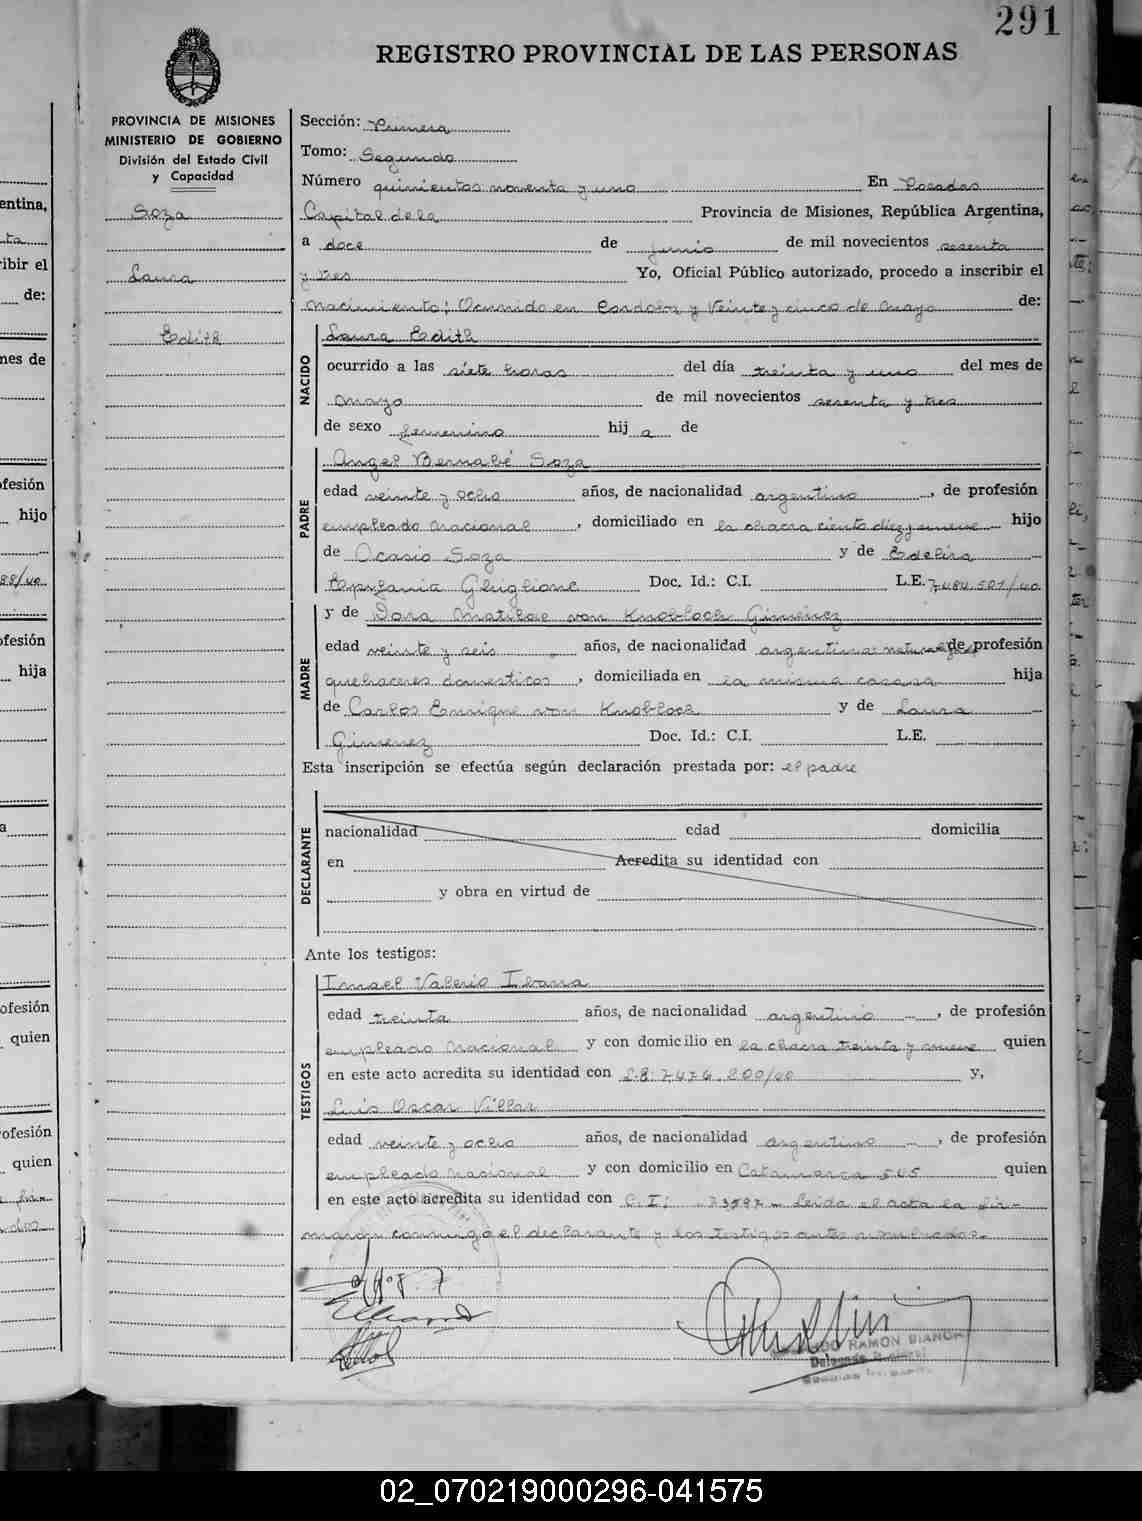 291
REGISTRO PROVINCIAL DE LAS PERSONAS
PROVINCIA DE MISIONES
MINISTERIO DE GOBIERNO
División del Estado Civil
y Capacidad
Soza
Laura
Edith
Sección: Primera
Tomo: Segundo
Número quinientos noventa y uno En Posadas
Capital de la Provincia de Misiones, República Argentina,
a doce de junio de mil novecientos sesenta
y tres Yo, Oficial Público autorizado, procedo a inscribir el
nacimiento; Ocurrido en Cordoba y Veinte y cinco de Mayo de:
NACIDO
Laura Edith
ocurrido a las siete horas del día treinta y uno del mes de
mayo de mil novecientos sesenta y tres
de sexo femenino hij a de
PADRE
Angel Bernabé Soza
edad veinte y ocho años, de nacionalidad argentino, de profesión
empleado nacional, domiciliado en la chacra ciento diez y nueve hijo
de Ocasio Soza y de Edelira
Epifania Ghiglione Doc. Id.: C.I. L.E. 7.484.501/40
MADRE
y de Dora Matilde von Knobloch Gimenez
edad veinte y seis años, de nacionalidad argentina de profesión
quehaceres domesticos, domiciliada en la misma casa hija
de Carlos Enrique von Knobloch y de Laura
Gimenez Doc. Id.: C.I. L.E.
Esta inscripción se efectúa según declaración prestada por: el padre
DECLARANTE
nacionalidad edad domicilia
en Acredita su identidad con
y obra en virtud de
Ante los testigos:
TESTIGOS
Ismael Valerio
edad treinta años, de nacionalidad argentino, de profesión
empleado nacional y con domicilio en la chacra treinta y nueve quien
en este acto acredita su identidad con 7.474.200/40 y,
Luis Oscar Villar
edad veinte y ocho años, de nacionalidad argentino, de profesión
empleado nacional y con domicilio en Catamarca 545 quien
en este acto acredita su identidad con C.I: Leida el acta la fir-
maron conmigo el declarante y los testigos antes nombrados.
RAMON BIANCHI
02_070219000296-041575